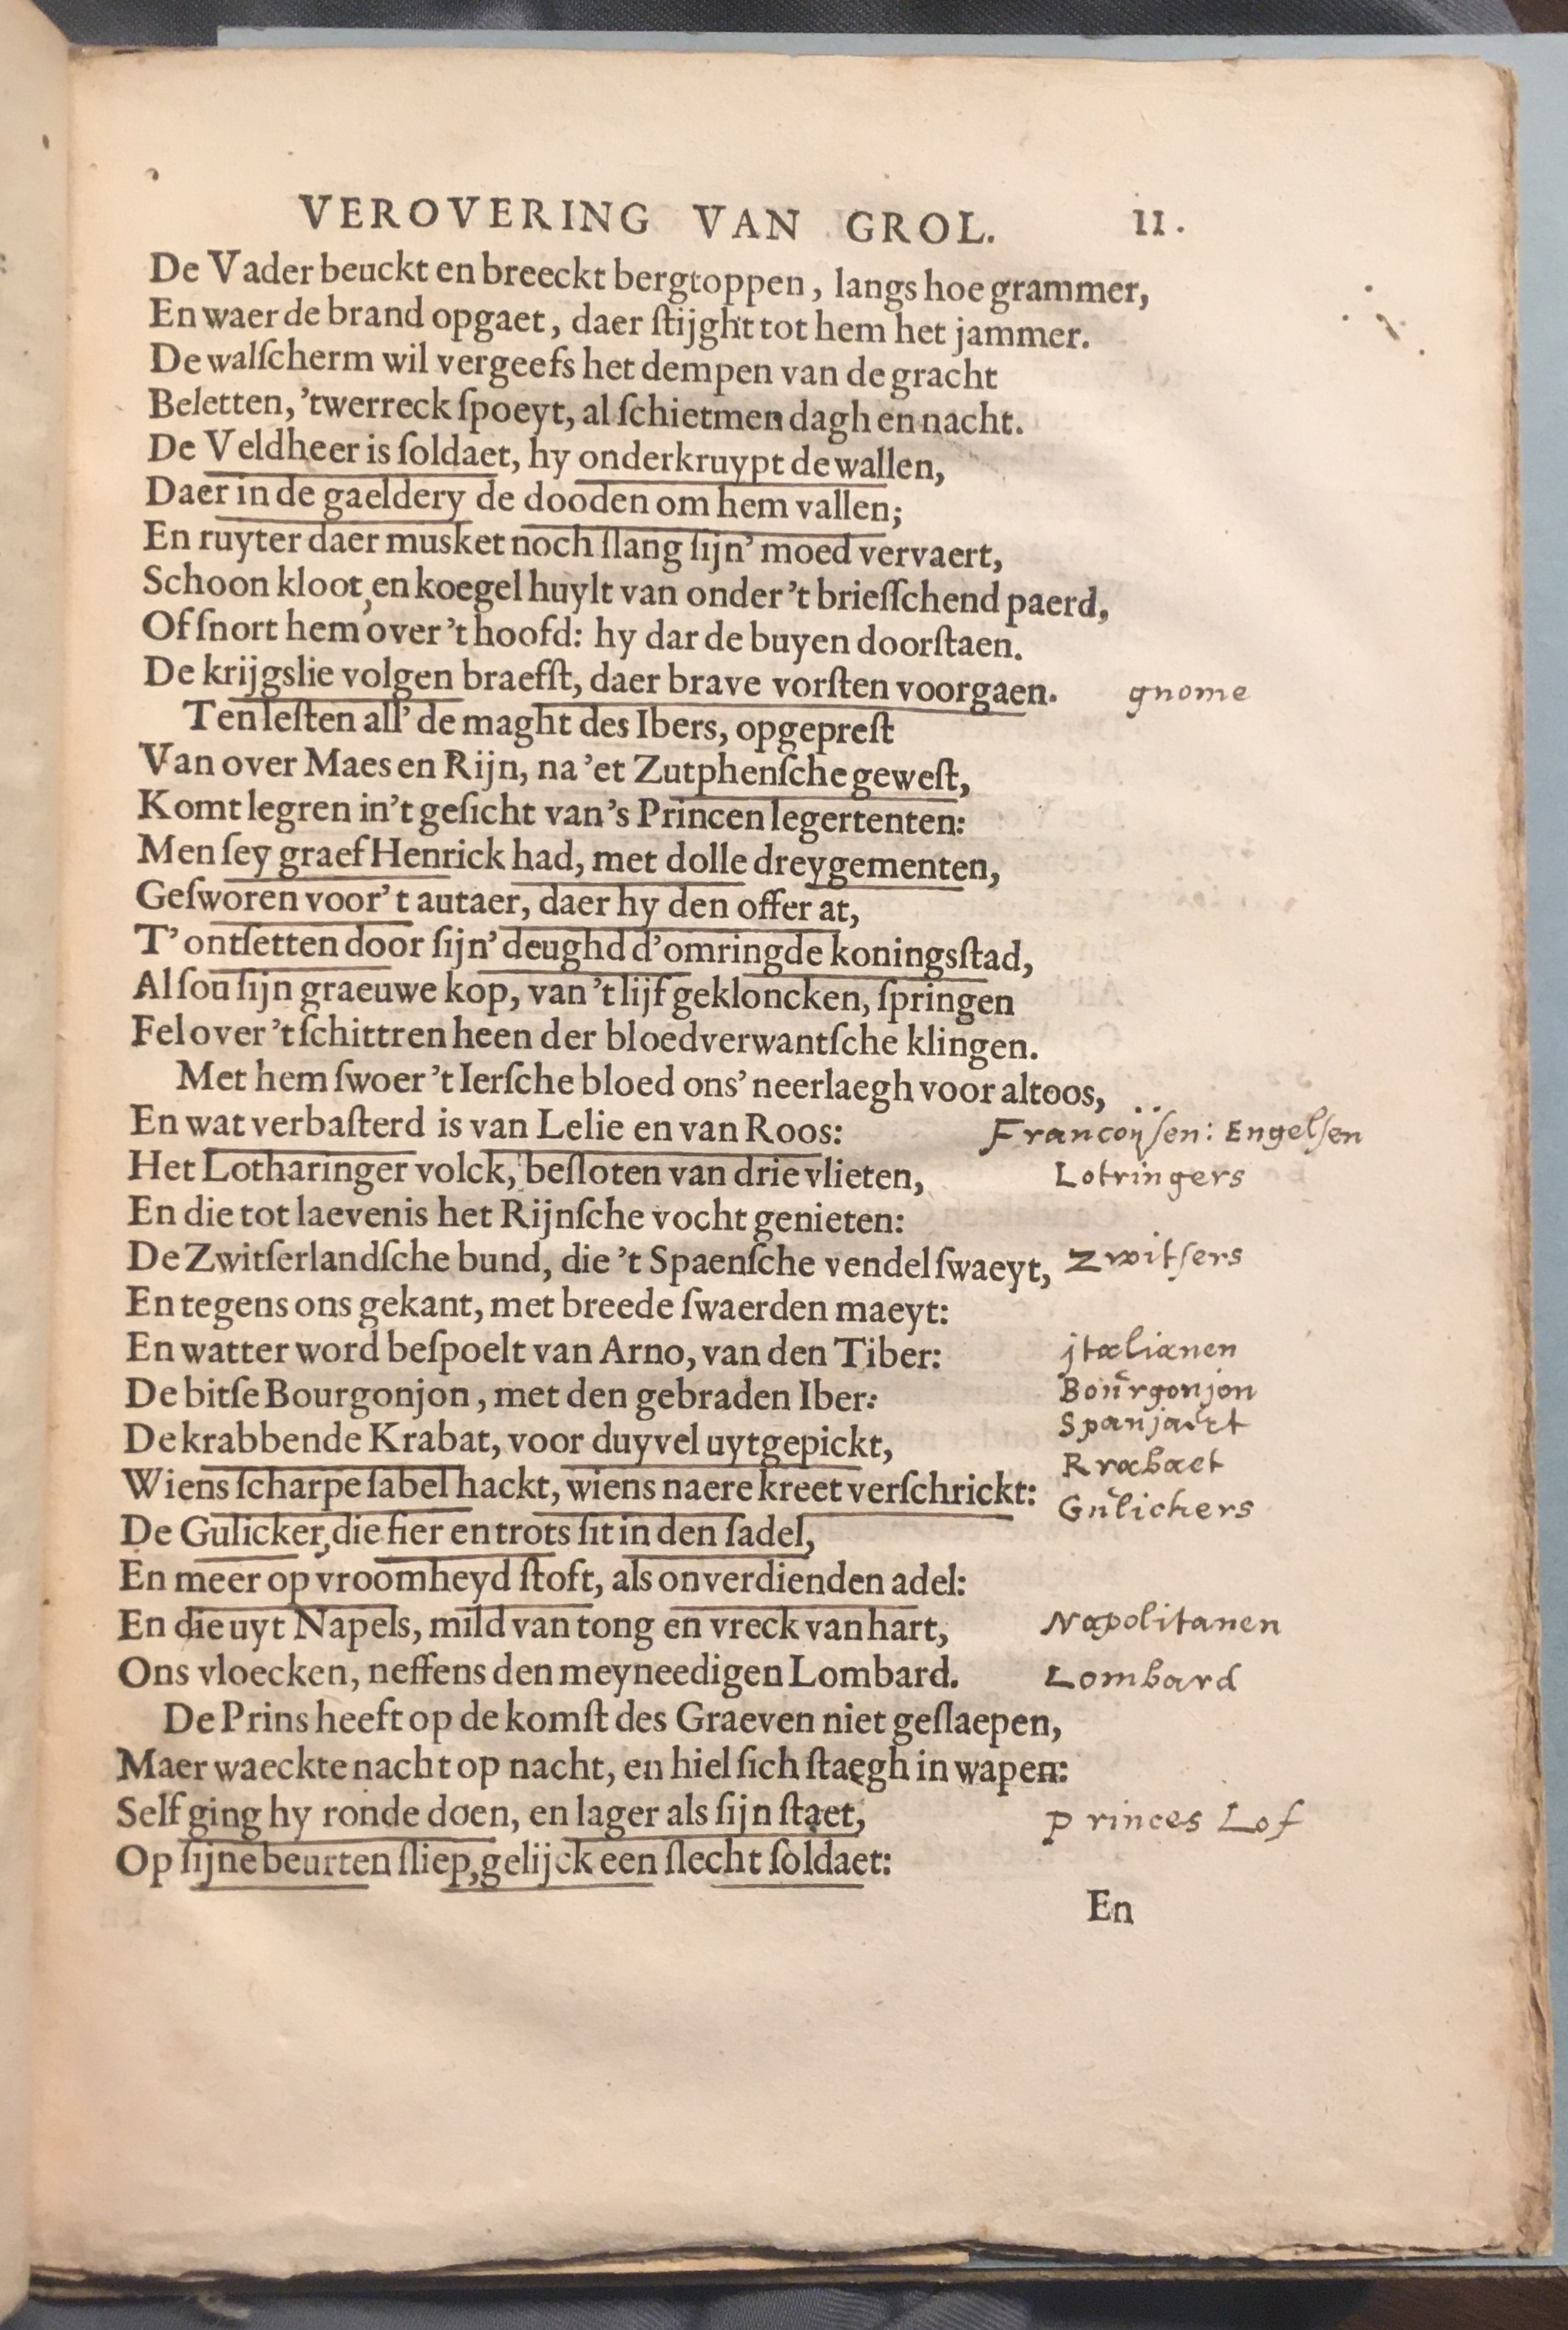 VEROVERING VAN GROL. 11.
De Vader beuckt en breeckt bergtoppen, langs hoe grammer,
En waer de brand opgaet, daer ſtijght tot hem het jammer.
De walſcherm wil vergeefs het dempen van de gracht
Beletten, 'twerreck ſpoeyt, al ſchietmen dagh en nacht.
De Veldheer is ſoldaet, hy onderkruypt de wallen,
Daer in de gaeldery de dooden om hem vallen;
En ruyter daer musket noch ſlang ſijn' moed vervaert,
Schoon kloot, en koegel huylt van onder 't brieſſchend paerd,
Of ſnort hem over 't hoofd: hy dar de buyen doorſtaen.
De krijgslie volgen braefſt, daer brave vorſten voorgaen. gnome
Ten leſten all' de maght des Ibers, opgepreſt
Van over Maes en Rijn, na 'et Zutphenſche geweſt,
Komt legren in't geſicht van's Princen legertenten:
Men ſey graef Henrick had, met dolle dreygementen,
Geſworen voor't autaer, daer hy den offer at,
T' ontſetten door ſijn' deughd d'omringde koningsſtad,
Al ſou ſijn graeuwe kop, van 't lijf gekloncken, ſpringen
Fel over 't ſchittren heen der bloedverwantſche klingen.
Met hem ſwoer 't Ierſche bloed ons' neerlaegh voor altoos,
En wat verbaſterd is van Lelie en van Roos: Francoyſen: Engelſen
Het Lotharinger volck, beſloten van drie vlieten, Lotringers
En die tot laevenis het Rijnſche vocht genieten:
De Zwitſerlandſche bund, die 't Spaenſche vendel ſwaeyt, Zwitſers
En tegens ons gekant, met breede ſwaerden maeyt:
En watter word beſpoelt van Arno, van den Tiber: jtalianen
De bitſe Bourgonjon, met den gebraden Iber: Boŭrgonjon
Spanjaert
De krabbende Krabat, voor duyvel uytgepickt, Krabaet
Wiens ſcharpe ſabel hackt, wiens naere kreet verſchrickt:
De Gulicker, die fier en trots ſit in den ſadel, Gŭlickers
En meer op vroomheyd ſtoft, als onverdienden adel:
En die uyt Napels, mild van tong en vreck van hart, Napolitanen
Ons vloecken, neffens den meyneedigen Lombard. Lombard
De Prins heeft op de komſt des Graeven niet geſlaepen,
Maer waeckte nacht op nacht, en hiel ſich ſtaegh in wapen:
Self ging hy ronde doen, en lager als ſijn ſtaet, princes Lof
Op ſijne beurten ſliep, gelijck een ſlecht ſoldaet:
En